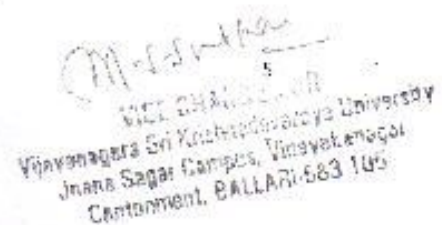 5
VICE CHANCELLOR
Vijayanagara Sri Krishnadevaraya University
Jnana Sagar Campus, Vinayakanagar
Cantonment, BALLARI-583 105